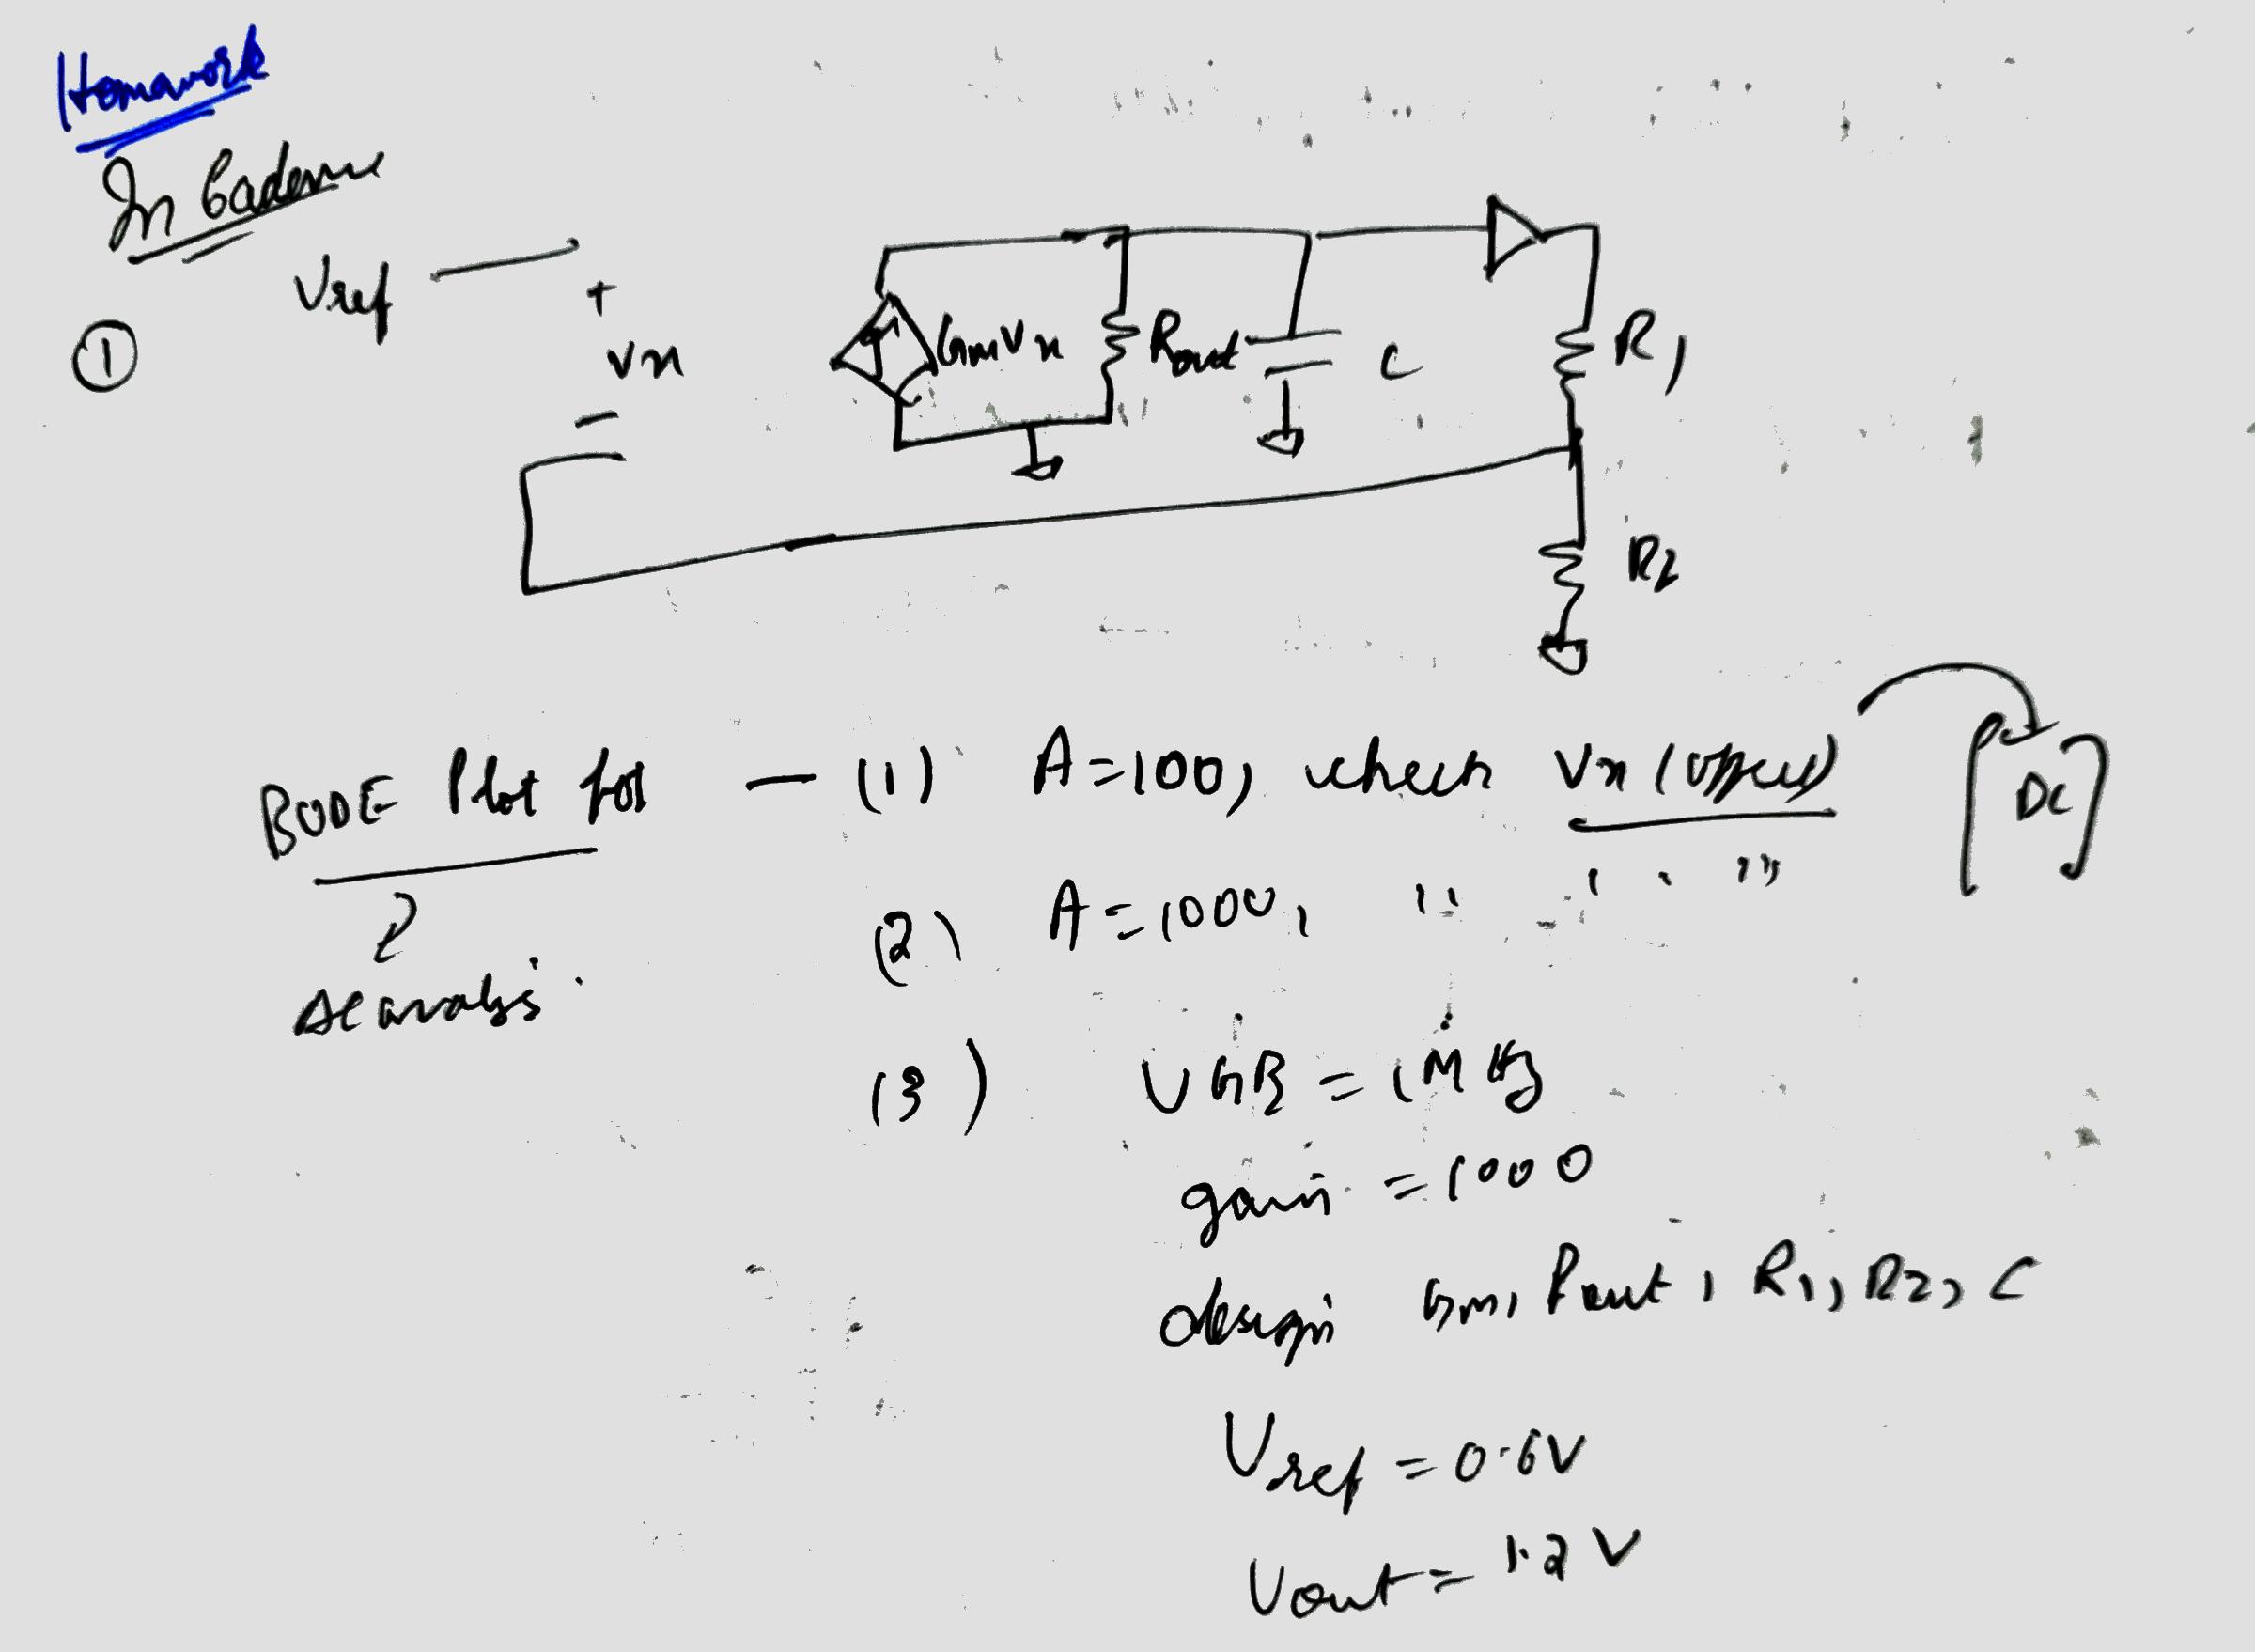 Homework
In Cadence
Vref
+
①
Vx
GmVx
Rout
C
R1
-
R2
BODE Plot for — (1) A=100, check Vx (offset) [DC]
(2) A=1000, " " " "
&
AC analysis.
(3) UGB = 1MHz
gain = 1000
design Gm, Rout, R1, R2, C
Vref = 0.6V
Vout = 1.2V